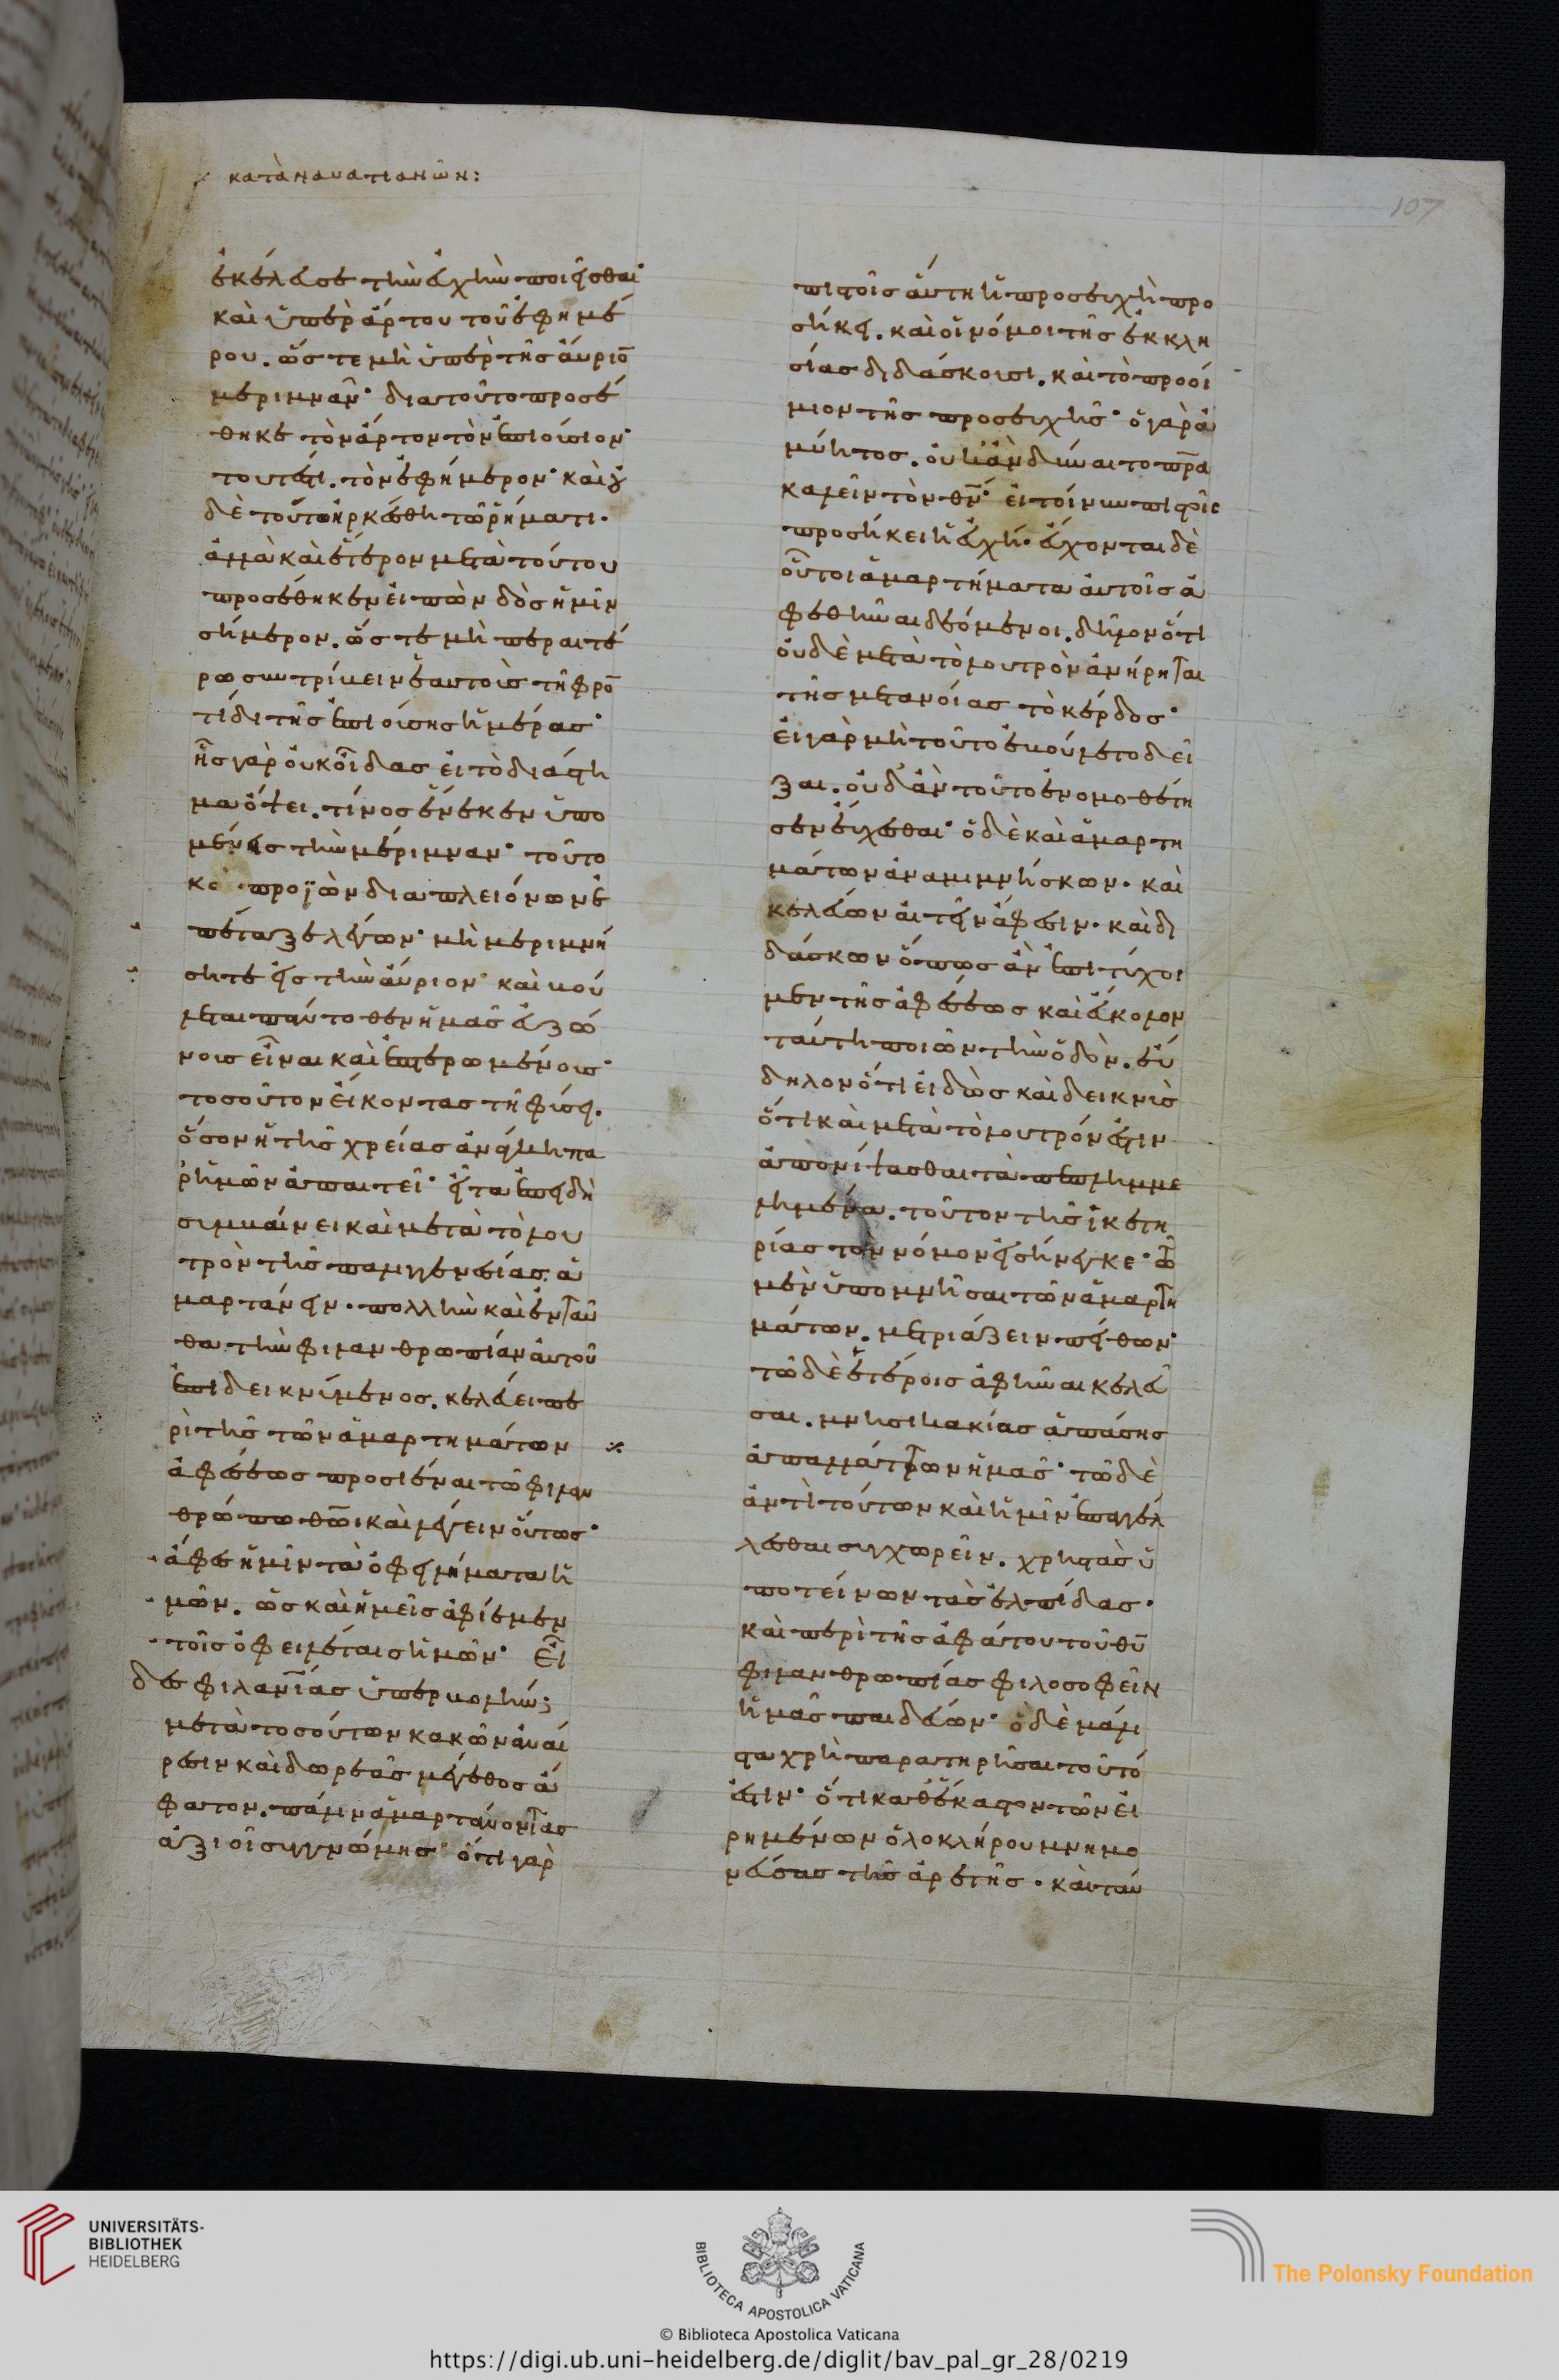 κατὰ ναυατιανῶν:
107
ἐκέλευσε τὴν εὐχὴν ποιεῖσθαι·
καὶ ὑπὲρ ἄρτου τοῦ ἐφημέ
ρου. ὥστε μὴ ὑπὲρ τῆς αὔριο̅
μεριμνᾶν· διατοῦτο προσέ
θηκε τὸν ἄρτον τὸν ἐπιούσιον·
τουτέστι. τὸν ἐφήμερον· καὶ οὐ
δὲ τούτω ἠρκέσθη τῶ ῥήματι·
ἀλλὰ καὶ ἕτερον μετὰ τούτου
προσέθηκεν εἰπὼν δὸς ἡμῖν
σήμερον. ὥστε μὴ περαιτέ
ρω συντρίβειν ἑαυτοὺς τῆ φρο̅
τίδι τῆς ἐπιούσης ἡμέρας·
ἧς γὰρ οὐκ οἶδας εἰ τὸ διάστη
μα ὄψει. τίνος ἕνεκεν ὑπο
μένεις τὴν μέριμναν· τοῦτο
καὶ προϊὼν δια πλειόνων ἐ
πέταξε λέγων· μὴ μεριμνή
σητε εἰς τὴν αὔριον· καὶ βού
λεται πάντοθεν ἡμᾶς εὐζώ
νους εἶναι καὶ ἐπτερωμένους·
τοσοῦτον εἴκοντας τῆ φύσει.
ὅσον ἡ τῆς χρείας ἀνάγκη πα
ρ' ἡμῶν ἀπαιτεῖ· εἶτα ἐπειδὴ
συμβαίνει καὶ μετὰ τὸ λου
τρὸν τῆς παλιγγενεσίας. ἁ
μαρτάνειν. πολλὴν καὶ ἐνταῦ
θα τὴν φιλανθρωπίαν αὐτοῦ
ἐπιδεικνύμενος. κελεύει πε
ρὶ τῆς τῶν ἁμαρτημάτων
ἀφέσεως προσιέναι τῶ φιλαν
θρώπω θω̅ι καὶ λέγειν οὕτως·
ἄφες ἡμῖν τὰ ὀφειλήματα ἡ
μῶν. ὡς καὶ ἡμεῖς ἀφίεμεν
τοῖς ὀφειλέταις ἡμῶν· Εἶ
δες φιλαν̅ίας ὑπερβολήν;
μετὰ τοσούτων κακῶν ἀναί
ρεσιν καὶ δωρεᾶς μέγεθος ἄ
φατον. πάλιν ἁμαρτάνοντας
ἀξιοῖ συγγνώμης· ὅτι γὰρ
πιστοῖς αὕτη ἡ προσευχὴ προ
σήκει. καὶ οἱ νόμοι τῆς ἐκκλη
σίας διδάσκουσι. καὶ τὸ προοί
μιον τῆς προσευχῆς· ὁ γὰρ ἀ
μύητος. οὐκ ἂν δύναιτο πρ̅α
καλεῖν τὸν θν̅· εἰ τοίνυν πιστοῖς
προσήκει ἡ εὐχή· εὔχονται δὲ
οὗτοι ἁμαρτήματα αὐτοῖς ἀ
φεθῆναι δεόμενοι. δῆλον ὅτι
οὐδὲ μετὰ τὸ λουτρὸν ἀνήρηται
τῆς μετανοίας τὸ κέρδος·
εἰ γὰρ μὴ τοῦτο ἐβούλετο δεῖ
ξαι. οὐδ' ἂν τοῦτο ἐνομοθέτη
σεν εὔχεσθαι· ὁ δὲ καὶ ἁμαρτη
μάτων ἀναμιμνήσκων. καὶ
κελεύων αἰτεῖν ἄφεσιν. καὶ δι
δάσκων ὅπως ἂν ἐπιτύχοι
μεν τῆς ἀφέσεως καὶ εὔκολον
ταύτη ποιῶν τὴν ὁδόν. εὔ
δηλον ὅτι εἰδὼς καὶ δεικνὺς
ὅτι καὶ μετὰ τὸ λουτρόν ἔστιν
ἀπονίψασθαι τὰ πεπλημμε
λημένα. τοῦτον τῆς ἱκετη
ρίας τὸν νόμον εἰσήνεγκε· τῶ
μὲν ὑπομνῆσαι τῶν ἁμαρτη
μάτων. μετριάζειν πείθων·
τῶ δὲ ἑτέροις ἀφῆναι κελεῦ
σαι. μνησικακίας ἁπάσης
ἀπαλλάττων ἡμᾶς· τῶ δὲ
ἀντὶ τούτων καὶ ἡμῖν ἐπαγγέλ
λεσθαι συγχωρεῖν. χρηστὰς ὑ
ποτείνων τὰς ἐλπίδας·
καὶ περὶ τῆς ἀφάτου τοῦ θυ̅
φιλανθρωπίας φιλοσοφεῖν
ἡμᾶς παιδεύων· ὃ δὲ μάλι
στα χρὴ παρατηρῆσαι τοῦτό
ἐστιν· ὅτι καθ' ἕκαστον τῶν εἰ
ρημένων ὁλοκλήρου μνημο
νεύσας τῆς ἀρετῆς. κἀνταῦ
UNIVERSITÄTS-
BIBLIOTHEK
HEIDELBERG
BIBLIOTECA APOSTOLICA VATICANA
The Polonsky Foundation
© Biblioteca Apostolica Vaticana
https://digi.ub.uni-heidelberg.de/diglit/bav_pal_gr_28/0219